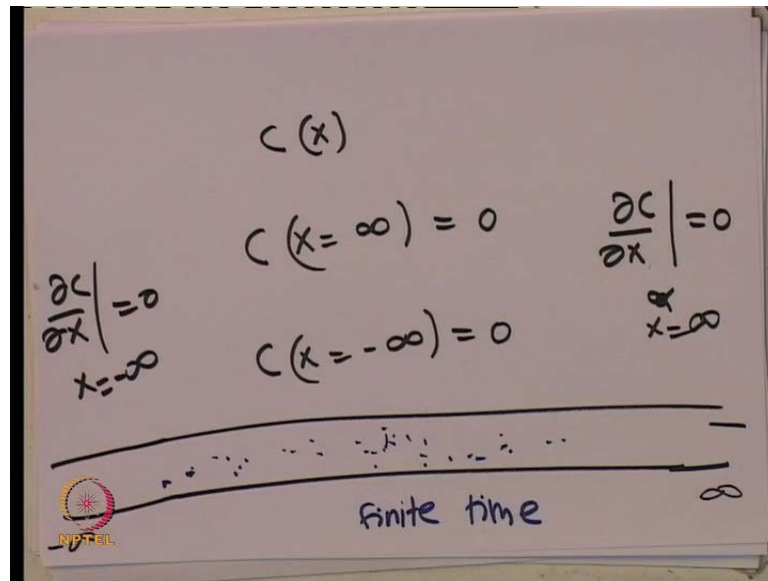 C (x)
C (x = ∞) = 0
∂C/∂x | = 0
x = ∞
∂C/∂x | = 0
x = -∞
C (x = -∞) = 0
finite time
∞
-∞
NPTEL